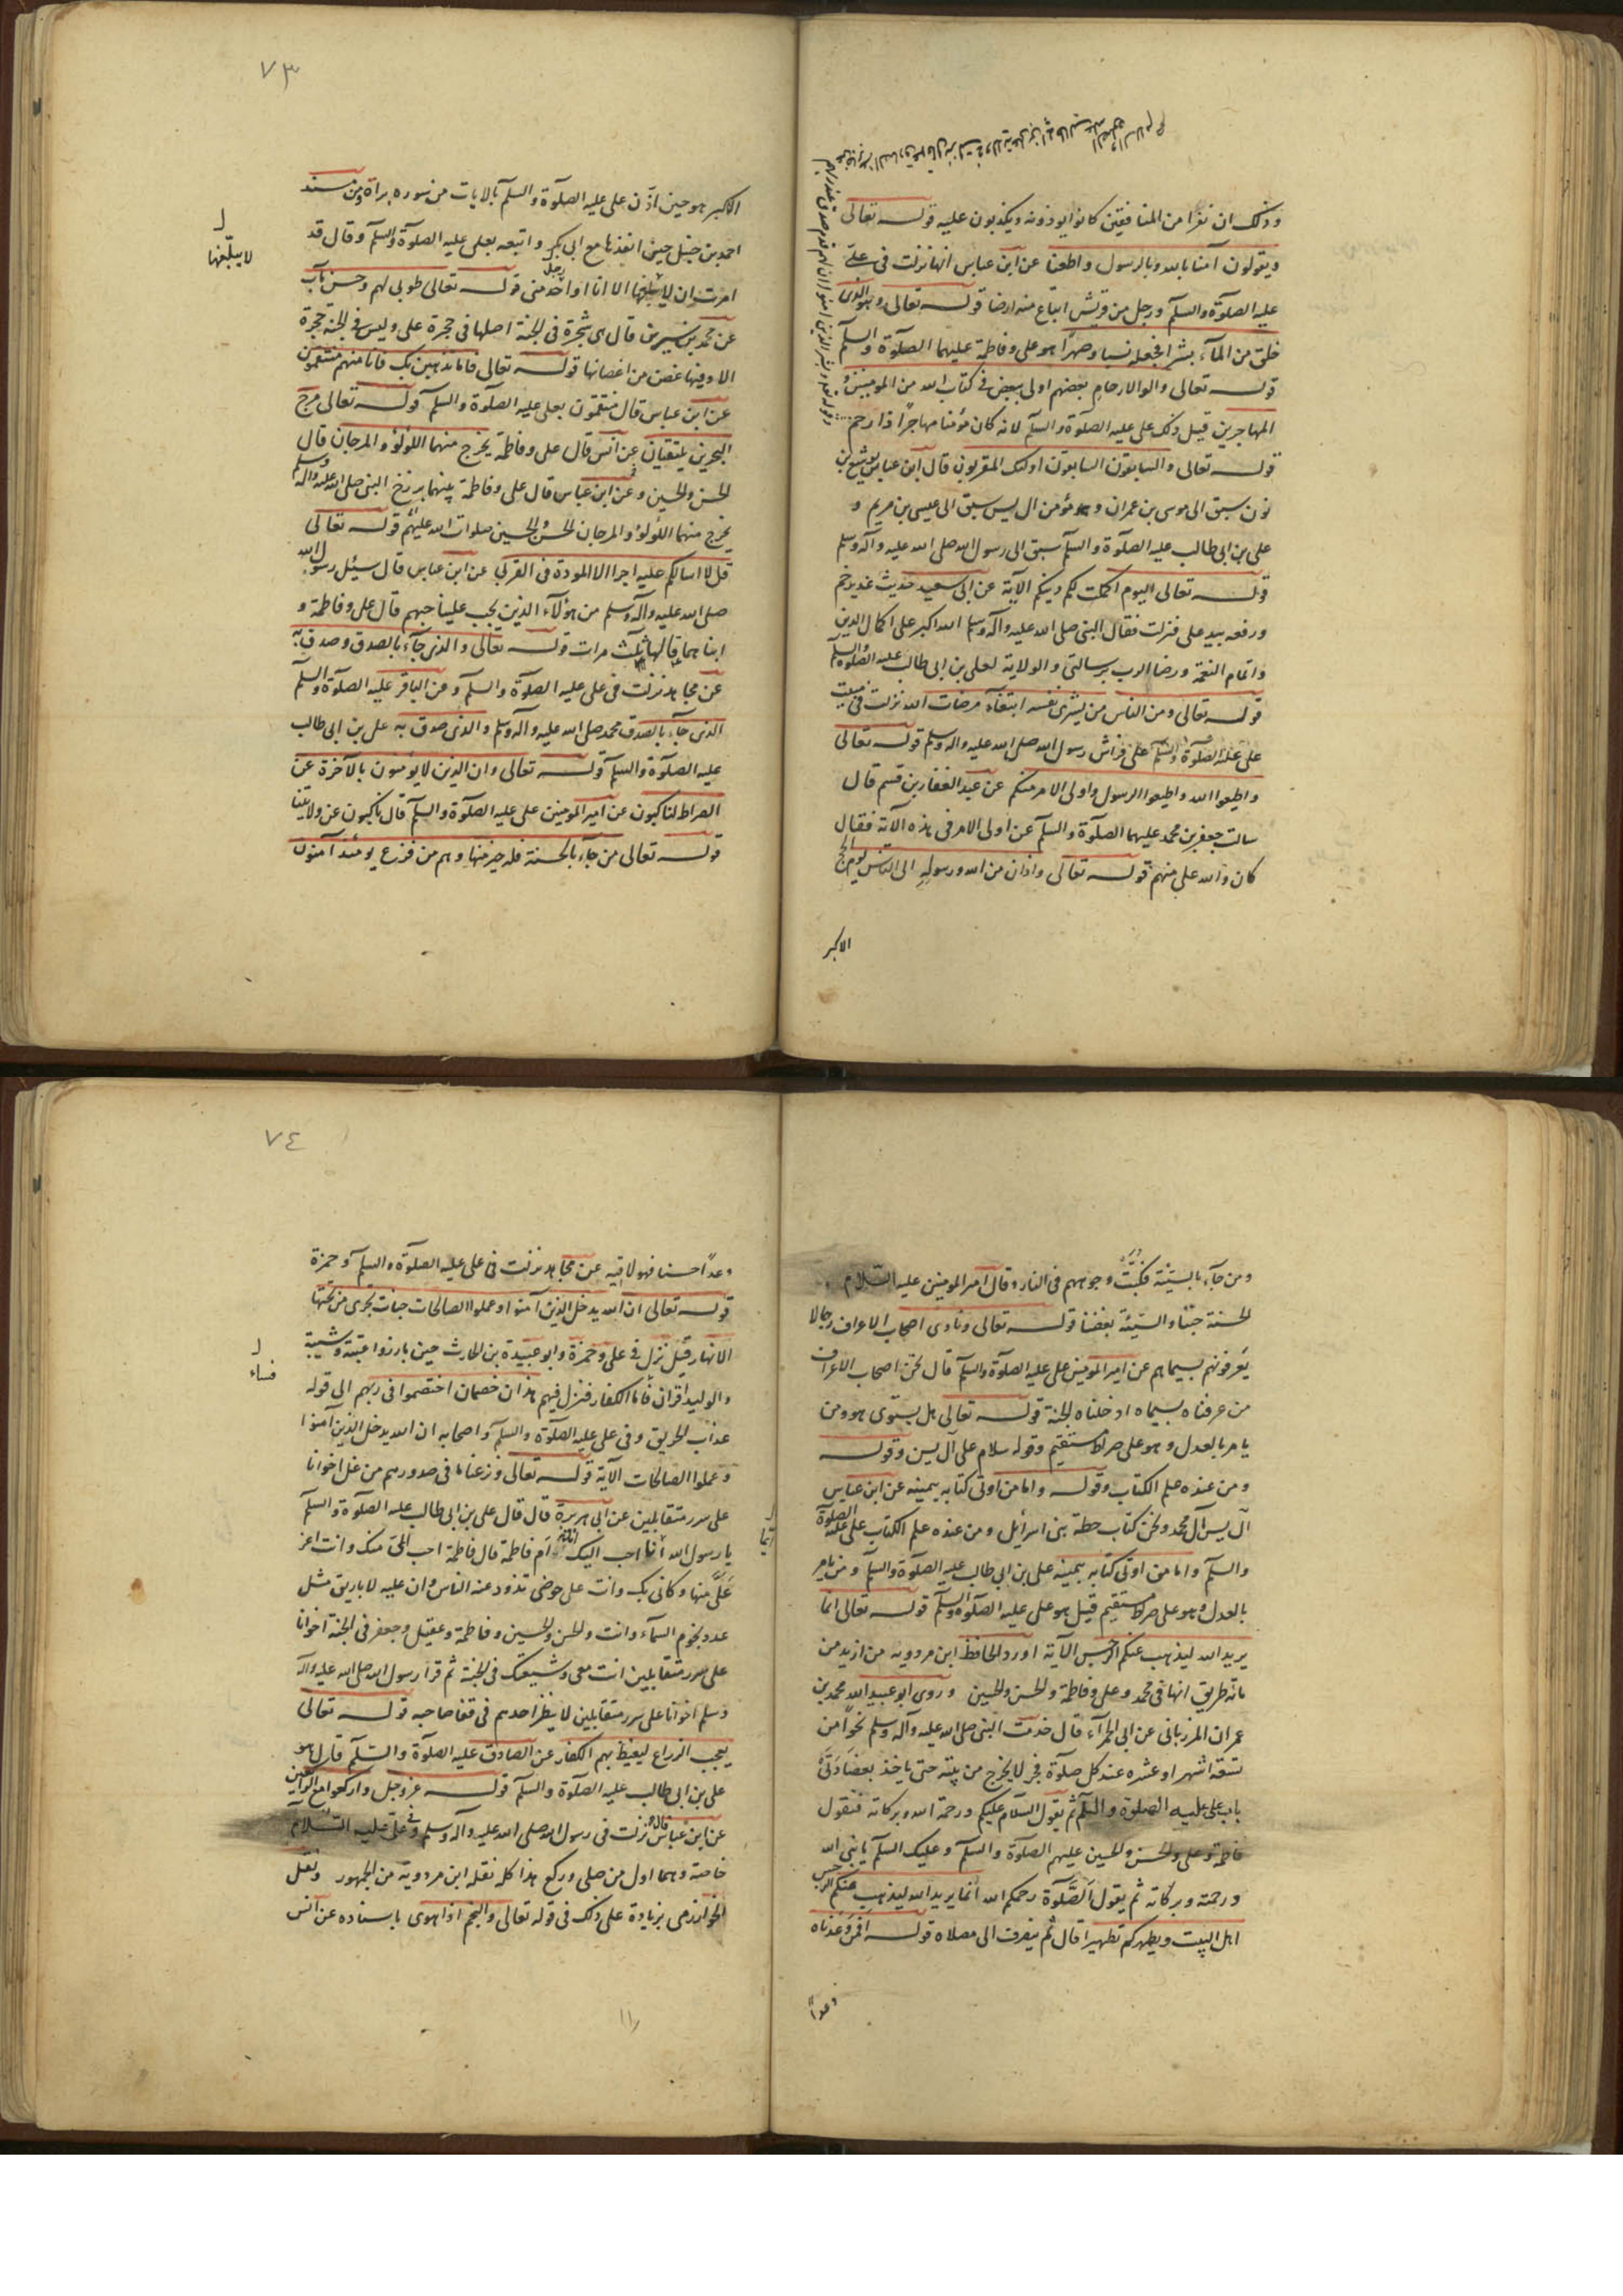 وذلك ان نفرا من المنافقين كانوا يوذونه ويكذبون عليه قوله تعالى
ويقولون آمنا بالله وبالرسول واطعنا عن ابن عباس انها نزلت في علىّ
عليه الصلوة والسلم ورجل من قريش ابتاع منه ارضا قوله تعالى وهو الذى
خلق من المآء بشرا فجعله نسبا وصهرا هو على وفاطمة عليهما الصلوة والسلم
قوله تعالى والوا الارحام بعضهم اولى ببعض في كتاب الله من المومنين و
المهاجرين قيل ذلك على عليه الصلوة والسلم لانه كان مؤمنا مهاجرا ذا رحم
قوله تعالى والسابقون السابقون اولئك المقربون قال ابن عباس يوشع بن
نون سبق الى موسى بن عمران ومؤمن ال يس سبق الى عيسى بن مريم و
على بن ابى طالب عليه الصلوة والسلم سبق الى رسول الله صلى الله عليه وآله وسلم
قوله تعالى اليوم اكملت لكم دينكم الآية عن ابى سعيد حديث غدير خم
ورفعه بيد على فنزلت فقال النبى صلى الله عليه وآله وسلم الله اكبر على اكمال الدين
واتمام النعمة ورضا الرب برسالتى والولاية لعلى بن ابى طالب عليه الصلوة والسلم
قوله تعالى ومن الناس من يشرى نفسه ابتغآء مرضات الله نزلت في مبيت
على عليه الصلوة والسلم على فراش رسول الله صلى الله عليه واله وسلم قوله تعالى
واطيعوا الله واطيعوا الرسول واولى الامر منكم عن عبد الغفار بن قسم قال
سالت جعفر بن محمد عليهما الصلوة والسلم عن اولى الامر فى هذه الآية فقال
كان والله على منهم قوله تعالى واذان من الله ورسوله الى الناس يوم الحج
الاكبر
٧٣
الاكبر هو حين اذّن على عليه الصلوة والسلم بالايات من سوره براة ومن مسند
احمد بن حنبل حين انفذها مع ابى بكر واتبعه بعلى عليه الصلوة والسلم وقال قد
لا يبلّغها
امرت ان لا يبلغها الا انا او رجل واحد منى قوله تعالى طوبى لهم وحسن مآب
عن محمد بن سيرين قال هى شجرة فى الجنة اصلها فى حجرة على وليس فى الجنة حجرة
الا وفيها غصن من اغصانها قوله تعالى فاما نذهبن بك فانا منهم منتقمون
عن ابن عباس قال منتقمون بعلى عليه الصلوة والسلم قوله تعالى مرج
البحرين يلتقيان عن انس قال على وفاطمة يخرج منهما اللؤلؤ والمرجان قال
الحسن والحسين وعن ابن عباس قال على وفاطمة بينهما برزخ النبى صلى الله عليه واله وسلم
يخرج منهما اللؤلؤ والمرجان الحسن والحسين صلوات الله عليهم قوله تعالى
قل لا اسالكم عليه اجرا الا المودة فى القربى عن ابن عباس قال سيئل رسول الله
صلى الله عليه وآله وسلم من هؤلآء الذين يجب علينا حبهم قال على وفاطمة و
ابناهما قالها ثلث مرات قوله تعالى والذى جآء بالصدق وصدق به
عن مجاهد نزلت فى على عليه الصلوة والسلم وعن الباقر عليه الصلوة والسلم
الذى جآء بالصدق محمد صلى الله عليه وآله وسلم والذى صدق به على بن ابى طالب
عليه الصلوة والسلم قوله تعالى وان الذين لا يؤمنون بالآخرة عن
الصراط لناكبون عن امير المومنين على عليه الصلوة والسلم قال ناكبون عن ولايتنا
قوله تعالى من جآء بالحسنة فله خير منها وهم من فزع يومئذ آمنون
ومن جآء بالسيئة فكبّت وجوههم فى النار وقال امير المومنين عليه السّلام
الحسنة حبّنا والسّيّئة بغضنا قوله تعالى ونادى اصحاب الاعراف رجالا
يعرفونهم بسيماهم عن امير المومنين على عليه الصلوة والسلم قال نحن اصحاب الاعراف
من عرفناه بسيماه ادخلناه الجنة قوله تعالى هل يستوى هو ومن
يامر بالعدل وهو على صراط مستقيم وقوله سلام على آل يسن وقوله
ومن عنده علم الكتاب وقوله واما من اوتى كتابه بيمينه عن ابن عباس
آل يس آل محمد ونحن كتاب حطة بنى اسرآئيل ومن عنده علم الكتاب على عليه الصلوة
والسلم واما من اوتى كتابه بيمينه على بن ابى طالب عليه الصلوة والسلم ومن يامر
بالعدل وهو على صراط مستقيم قيل هو على عليه الصلوة والسلم قوله تعالى انما
يريد الله ليذهب عنكم الرجس الآية اورد الحافظ ابن مردويه من ازيد من
مائة طريق انها فى محمد وعلى وفاطمة والحسن والحسين وروى ابو عبيد الله محمد بن
عمران المرزبانى عن ابى الحمرآء قال خدمت النبى صلى الله عليه وآله وسلم نحوا من
تسعة اشهر او عشره عند كل صلوة فجر لا يخرج من بيته حتى ياخذ بعضادتى
باب على عليه الصلوة والسلم ثم يقول السّلام عليكم ورحمة الله وبركاته فتقول
فاطمة وعلى والحسن والحسين عليهم الصلوة والسلم وعليك السلم يا نبى الله
ورحمة وبركاته ثم يقول الصّلوة رحمكم الله انما يريد الله ليذهب عنكم الرجس
اهل البيت ويطهركم تطهيرا قال ثم ينصرف الى مصلاه قوله افمن وعدناه
وعدًا
٧٤
وعدًا حسنا فهو لاقيه عن مجاهد نزلت فى على عليه الصلوة والسلم وحمزة
قوله تعالى ان الله يدخل الذين آمنوا وعملوا الصالحات جنات تجرى من تحتها
الانهار قيل نزل فى على وحمزة وابو عبيدة بن الحارث حين بارزوا عتبة وشيبة
والوليد اقران فاما الكفار فنزل فيهم هذان خصمان اختصموا فى ربهم الى قوله
عذاب الحريق وفى على عليه الصلوة والسلم واصحابه ان الله يدخل الذين آمنوا
وعملوا الصالحات الآية قوله تعالى ونزعنا ما فى صدورهم من غل اخوانا
على سرر متقابلين عن ابى هريرة قال قال على بن ابى طالب عليه الصلوة والسلم
ايّما
يا رسول الله احب اليك ام فاطمة قال فاطمة احب الىّ منك وانت اعز
علىّ منها وكانى بك وانت على حوضى تذود عنه الناس وان عليه لاباريق مثل
عدد نجوم السمآء وانت والحسن والحسين وفاطمة وعقيل وجعفر فى الجنة اخوانا
على سرر متقابلين انت معى وشيعتك فى الجنة ثم قرا رسول الله صلى الله عليه وآله
وسلم اخوانا على سرر متقابلين لا ينظر احدهم فى قفا صاحبه قوله تعالى
يعجب الزراع ليغيظ بهم الكفار عن الصادق عليه الصلوة والسّلم قال هو
على بن ابى طالب عليه الصلوة والسلم قوله عزوجل واركعوا مع الراكعين
عن ابن عباس نزلت فى رسول الله صلى الله عليه وآله وسلم وفى على عليه السّلام
خاصة وهما اول من صلى وركع هذا كله نقله ابن مردويه من الجمهور ونقل
الخوارزمى بزيادة على ذلك فى قوله تعالى والنجم اذا هوى باسناده عن انس
١١